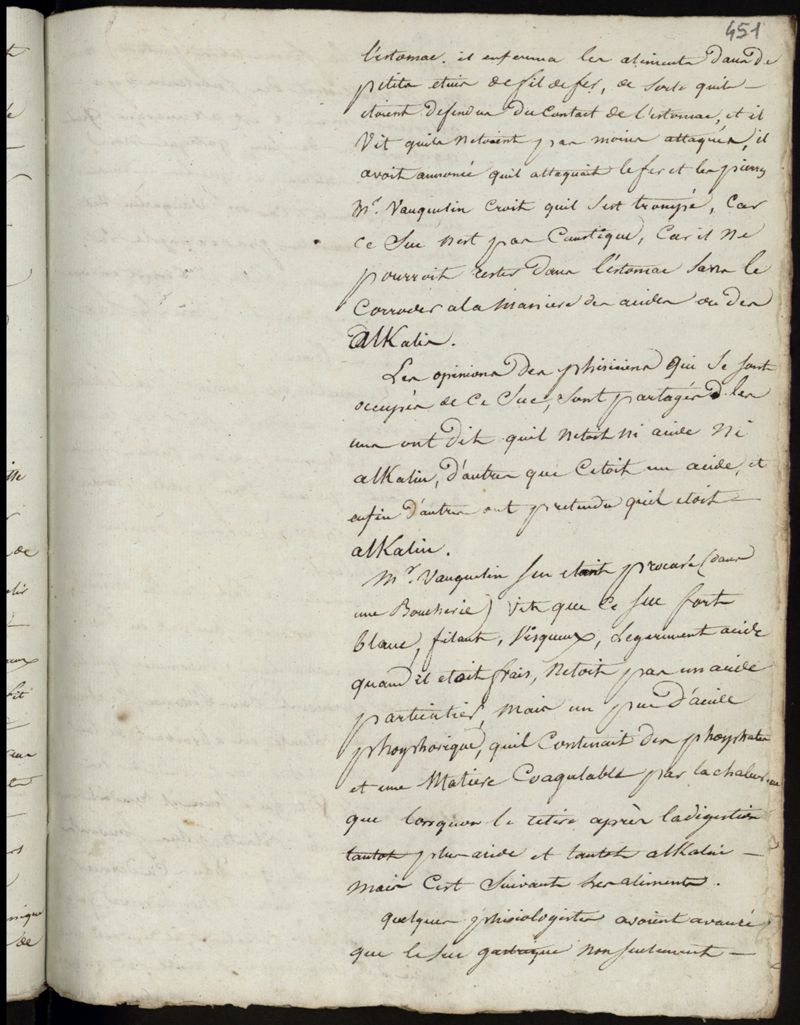 451
l'estomac. il enferma les aliments dans de
petits etuis de fil de fer, de sorte quils
etoient defendus du Contact de l'estomac, et il
Vit quils netoient pas moins attaqués, il
avoit annoncé quil attaquait le fer et les pierres
Mr. Vauquelin Croit quil S'est trompé, Car
Ce Suc n'est pas Caustique, Car il Ne
pourroit rester dans l'éstomac Sans le
Corroder a la Maniere des acides ou des
alKalis.
Les opinions des phisiciens qui Se sont
occupés de Ce Suc, Sont partagés Les
uns ont Dit quil Netoit Ni acide Ni
alKalin, D'autres que C'etoit un acide, et
enfin D'autres ont pretendu quil etoit
alKalin.
Mr. Vauquelin Sen etant procuré (dans
une Boucherie) Vit que Ce Suc fort
blanc, filant, Visqueux, Legerement acide
quand il etoit frais, Netoit pas un acide
particulier, Mais un peu D'acide
phosphorique, quil Contenait des phosphates
et une Matiere Coagulable par la chaleur
que lorsquon le retire après la digestion
tantot plus acide et tantot alKalin
Mais C'est Suivant les aliments.
quelques phisiologistes avoient avancé
que le Suc gastrique Non Seulement